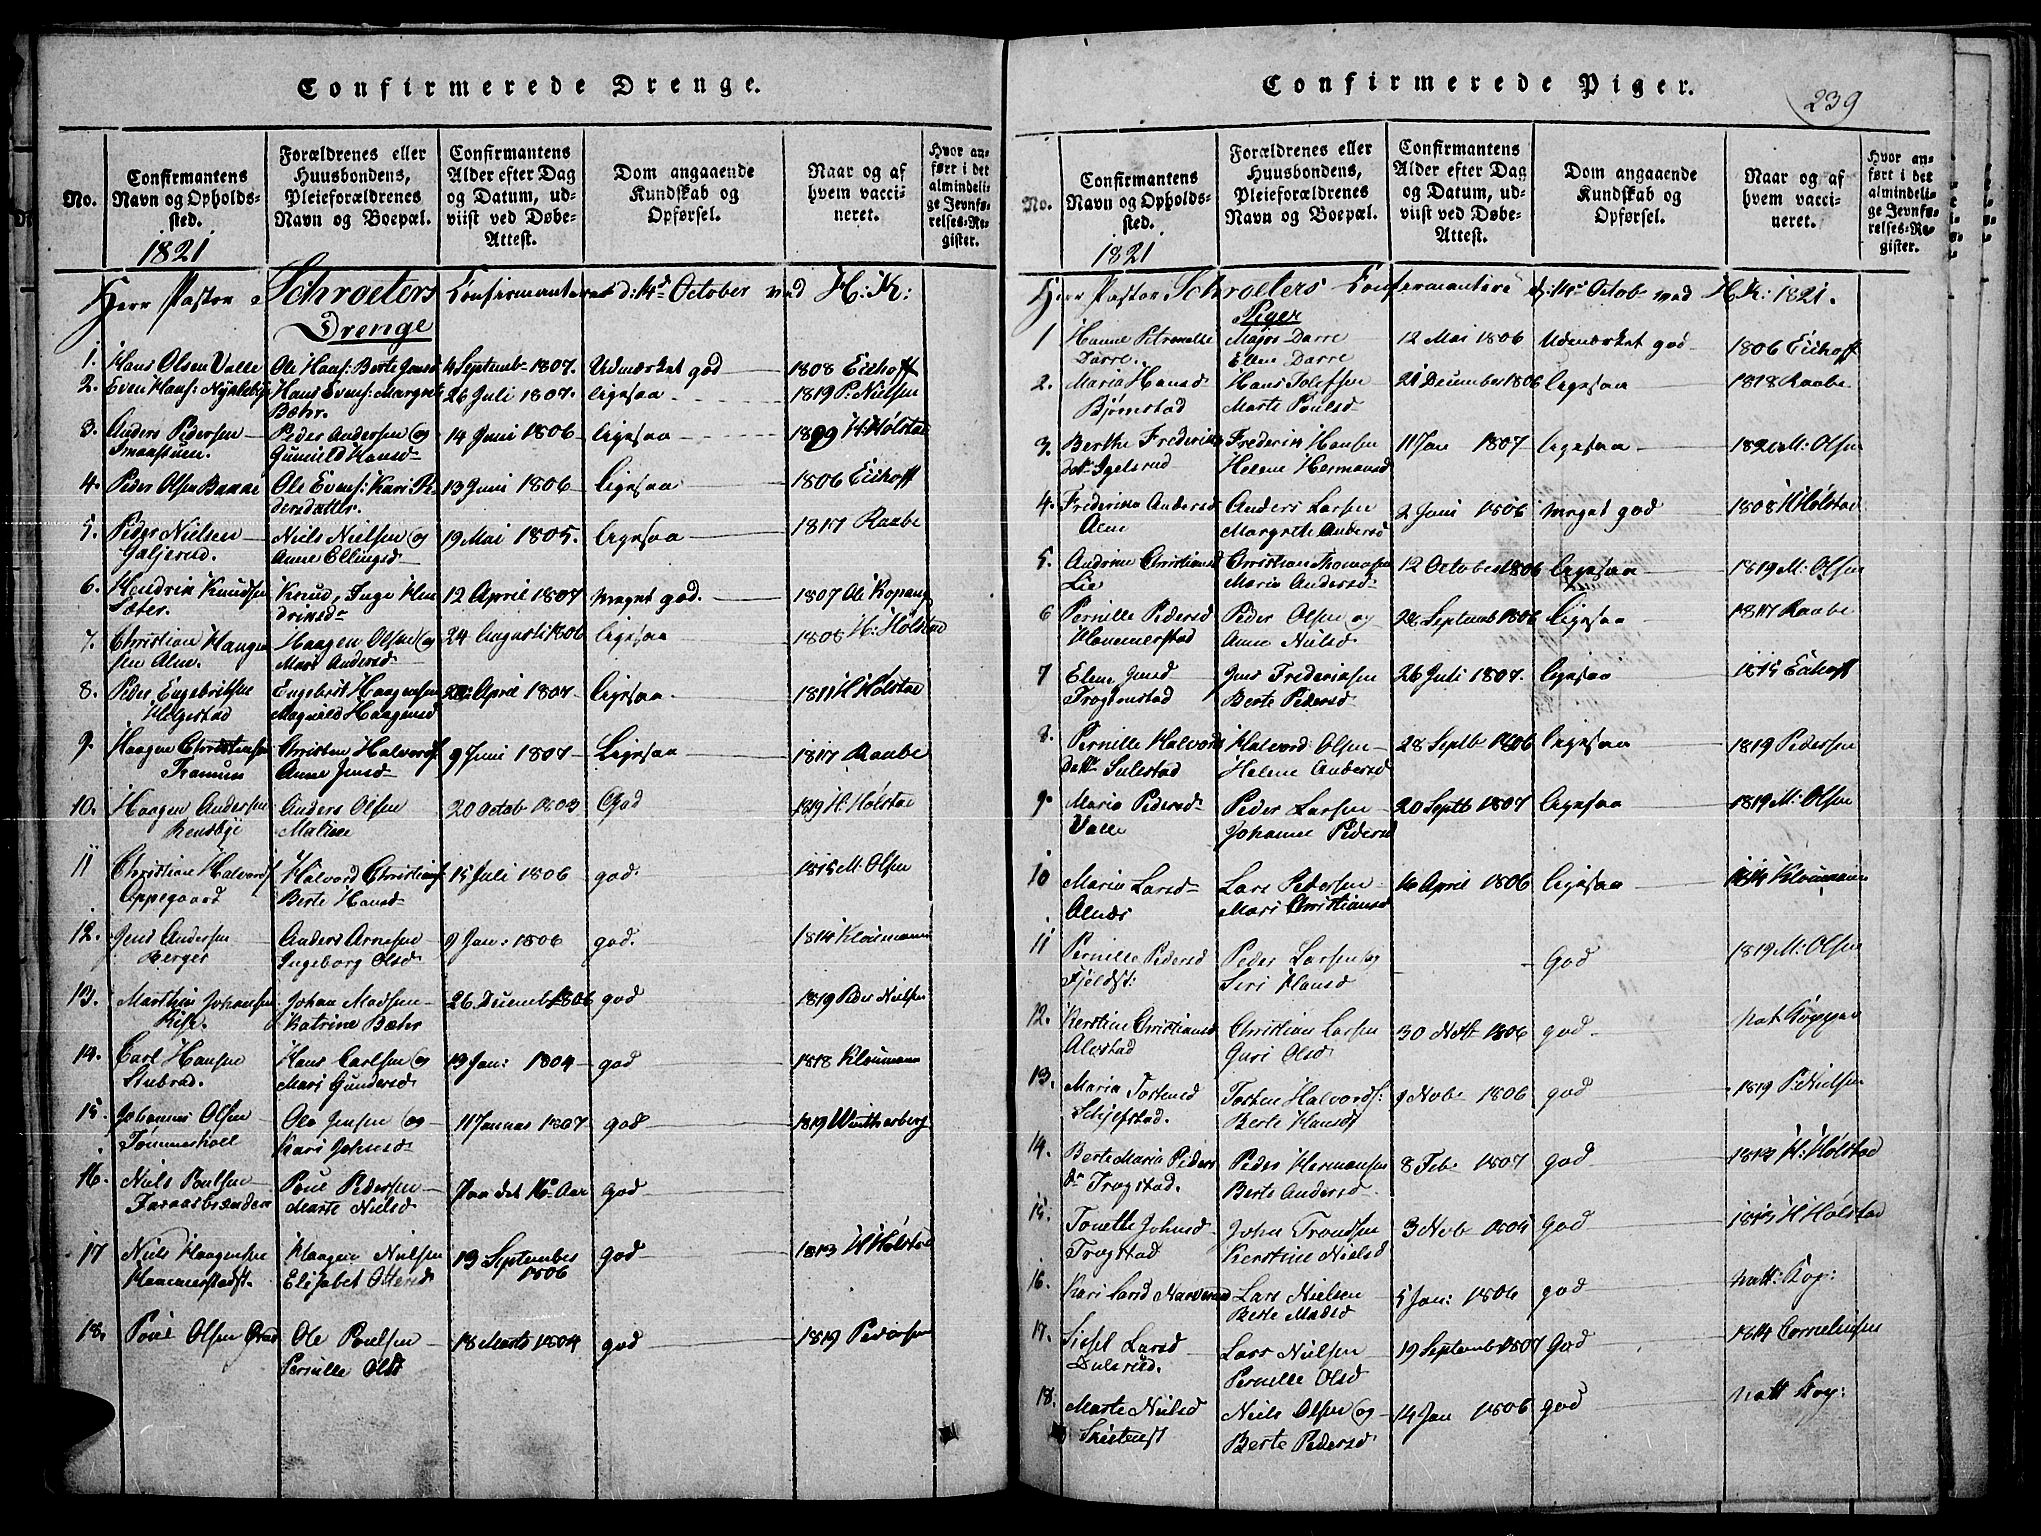 Confirmerede Drenge.
No.
Confirmantens Navn og Opholdssted.
Forældrenes eller Huusbondens, Pleieforældrenes Navn og Boepæl.
Confirmantens Alder efter Dag og Datum, udviist ved Døbe-Attest.
Dom angaaende Kundskab og Opførsel.
Naar og af hvem vaccineret.
Hvor anført i det almindelige Jevnførelses-Register.
1821
Herr Pastor Schroeters Confirmantere d: 14de October ved H: K:
Drenge
1. Hans Olsen Valle Ole Hans: Berte Jensd 4 Septemb 1807. Udmærket god 1808 Eichoff
2. Even Hans: Hans Evens: Margret 26 Juli 1807. ligesaa 1819 P: Nielsen
Bæhr.
3. Anders Pedersen Peder Andersen og 14 Juni 1806 ligesaa H: Holstad
Smaastuen. Gunnild Hansd
4. Peder Olsen Ole Evens: Kari Pe 13 Juni 1806 ligesaa 1806 Eichoff
dersdatter.
5. Peder Nielsen Niels Nielsen og 19 Mai 1805. ligesaa 1817 Raabe
Anne Ellingsd
6. Hendrik Knudsen Knud, Inge Hen 12 April 1807 meget god. 1807 Ole Kopang
Sæter. driksd
7. Christian Haagen Haagen Olsen og 24 Augusti 1806 ligesaa 1808 H: Holstad
sen Alm. Mari Andersd
8. Peder Engebritsen Engebret Haagensen April 1807 ligesaa 1811 H Holstad
Helgestad Magnild Haagensd
9. Haagen Christensen Christen Halvords 9 Juni 1807 Ligesaa 1817 Raabe
Anne Jensd
10. Haagen Andersen Anders Olsen 20 Octob 1803 God 1819 H: Holstad
Rensbye
11 Christian Halvords Halvord Christians 15 Juli 1806 god 1815 M: Olsen
Oppegaard Berte Hansd
12. Jens Andersen Anders Arnesen 9 Jan: 1806 god. 1814 Kloumann
Berger Ingeborg Olsd
13. Marthin Johansen Johan Madsen 26 Decemb 1806 god 1819 Peder Nielsen
Rise. Katrine Bæhr
14. Carl Hansen Hans Carlsen og 19 Jan: 1804 god 1818 Kloumann
Stubrud. Mari Gundersd
15. Johannes Olsen Ole Jensen og 11 Januar 1807 god 1819 Wintherberg
Tømmerhoel Kari Johnsd
16. Niels Poulsen Poul Pedersen Paa det 16de Aar god
Faraasbrænden Marte Nielsd
17 Niels Haagensen Haagen Nielsen 19 September god 1813 H Holstad
Hammerstadst. Elisabet Ottersd 1806
18. Poul Olsen Ole Poulsen 18 Marts 1804 god 1819 Pedersen
Pernille Olsd
Confirmerede Piger.
239
No.
Confirmantens Navn og Opholdssted.
Forældrenes eller Huusbondens, Pleieforældrenes Navn og Boepæl.
Confirmantens Alder efter Dag og Datum, udviist ved Døbe-Attest.
Dom angaaende Kundskab og Opførsel.
Naar og af hvem vaccineret.
Hvor anført i det almindelige Jevnførelses-Register.
1821
Herr Pastor Schroeters Confirmantere d: 14de Octob ved H: K: 1821.
Piger
1 Hanne Petronelle Majos Darre 12 Mai 1806 Udmærket god 1806 Eichoff
Darre. Ellen Darre
2. Maria Hansd Hans Tolefsen 21 December 1806 ligesaa 1818 Raabe
Bjørnstad Marte Poulsd
3. Berthe Frederiks Frederik Hansen 11 Jan 1807 ligesaa 1821 M: Olsen
datt. Igelsrud Helene Hermansd
4. Frederika Andersd Anders Larsen 2 Juni 1806 meget god 1808 H Holstad
Alm Margrethe Andersd
5. Andrine Christiansd Christian Thomasen 12 October 1806 ligesaa 1819 M: Olsen
Lie Maria Andersd
6 Pernille Pedersd Peder Olsen og Septemb 1806 ligesaa 1817 Raabe
Hammerstad Anne Nielsd
7 Elene Jensd Jens Frederiksen 26 Juli 1807. ligesaa 1815 Eichoff
Trogenstad Berte Pedersd
8. Pernille Halvords Halvord Olsen 28 Septb 1806 ligesaa 1819 Pedersen
datt. Sulestad Helene Andersd
9. Maria Pedersd Peder Larsen 20 Septb 1807 ligesaa 1819 M: Olsen
Valle Johanne Pedersd
10 Maria Larsd Lars Pedersen 16 April 1806 ligesaa 1814 Kloumann
Alnæs Mari Christiansd
11 Pernille Pedersd Peder Larsen og God 1819 M: Olsen
Fjeldst: Siri Hansd
12. Kerstine Christiansd Christian Larsen 30 Novb 1806 god nat Kopper
Alestad Guri Olsd
13. Maria Torstensd Torsten Halvords: 9 Novb: 1806 god 1819 P Nielsen
Schjefstad. Berte Hansd
14. Berte Maria Peders Peder Hermansen 8 Feb: 1807 god 1813 H: Holstad
d. Trogstad. Berte Andersd
15. Tonette Johnsd John Trondsen 3 Nob god 1813 H Holstad
Trogstad Kerstine Nielsd
16. Kari Larsd Lars Nielsen 5 Jan: 1806 god natt: Kop:
Berte Madsd
17. Sissel Larsd Lars Nielsen 19 Septemb 1807 God 1814 Corneliusen
Dulsrud. Pernelle Olsd
18. Marte Nielsd Niels Olsen og 14 Jan 1806 god natt Kop:
Berte Pedersd